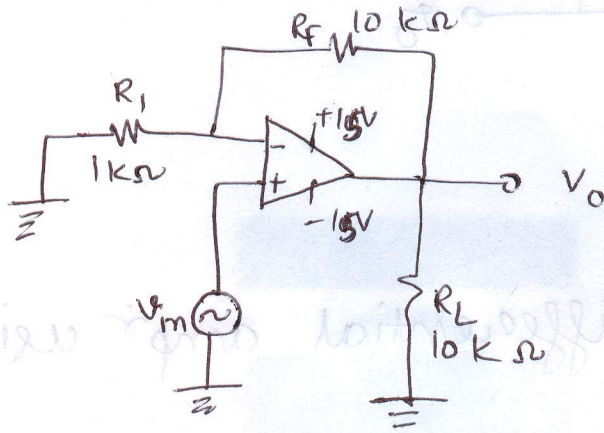 RF 10 KΩ
R1
1KΩ
-
+
+15V
-15V
Vo
Vin
RL
10 K Ω